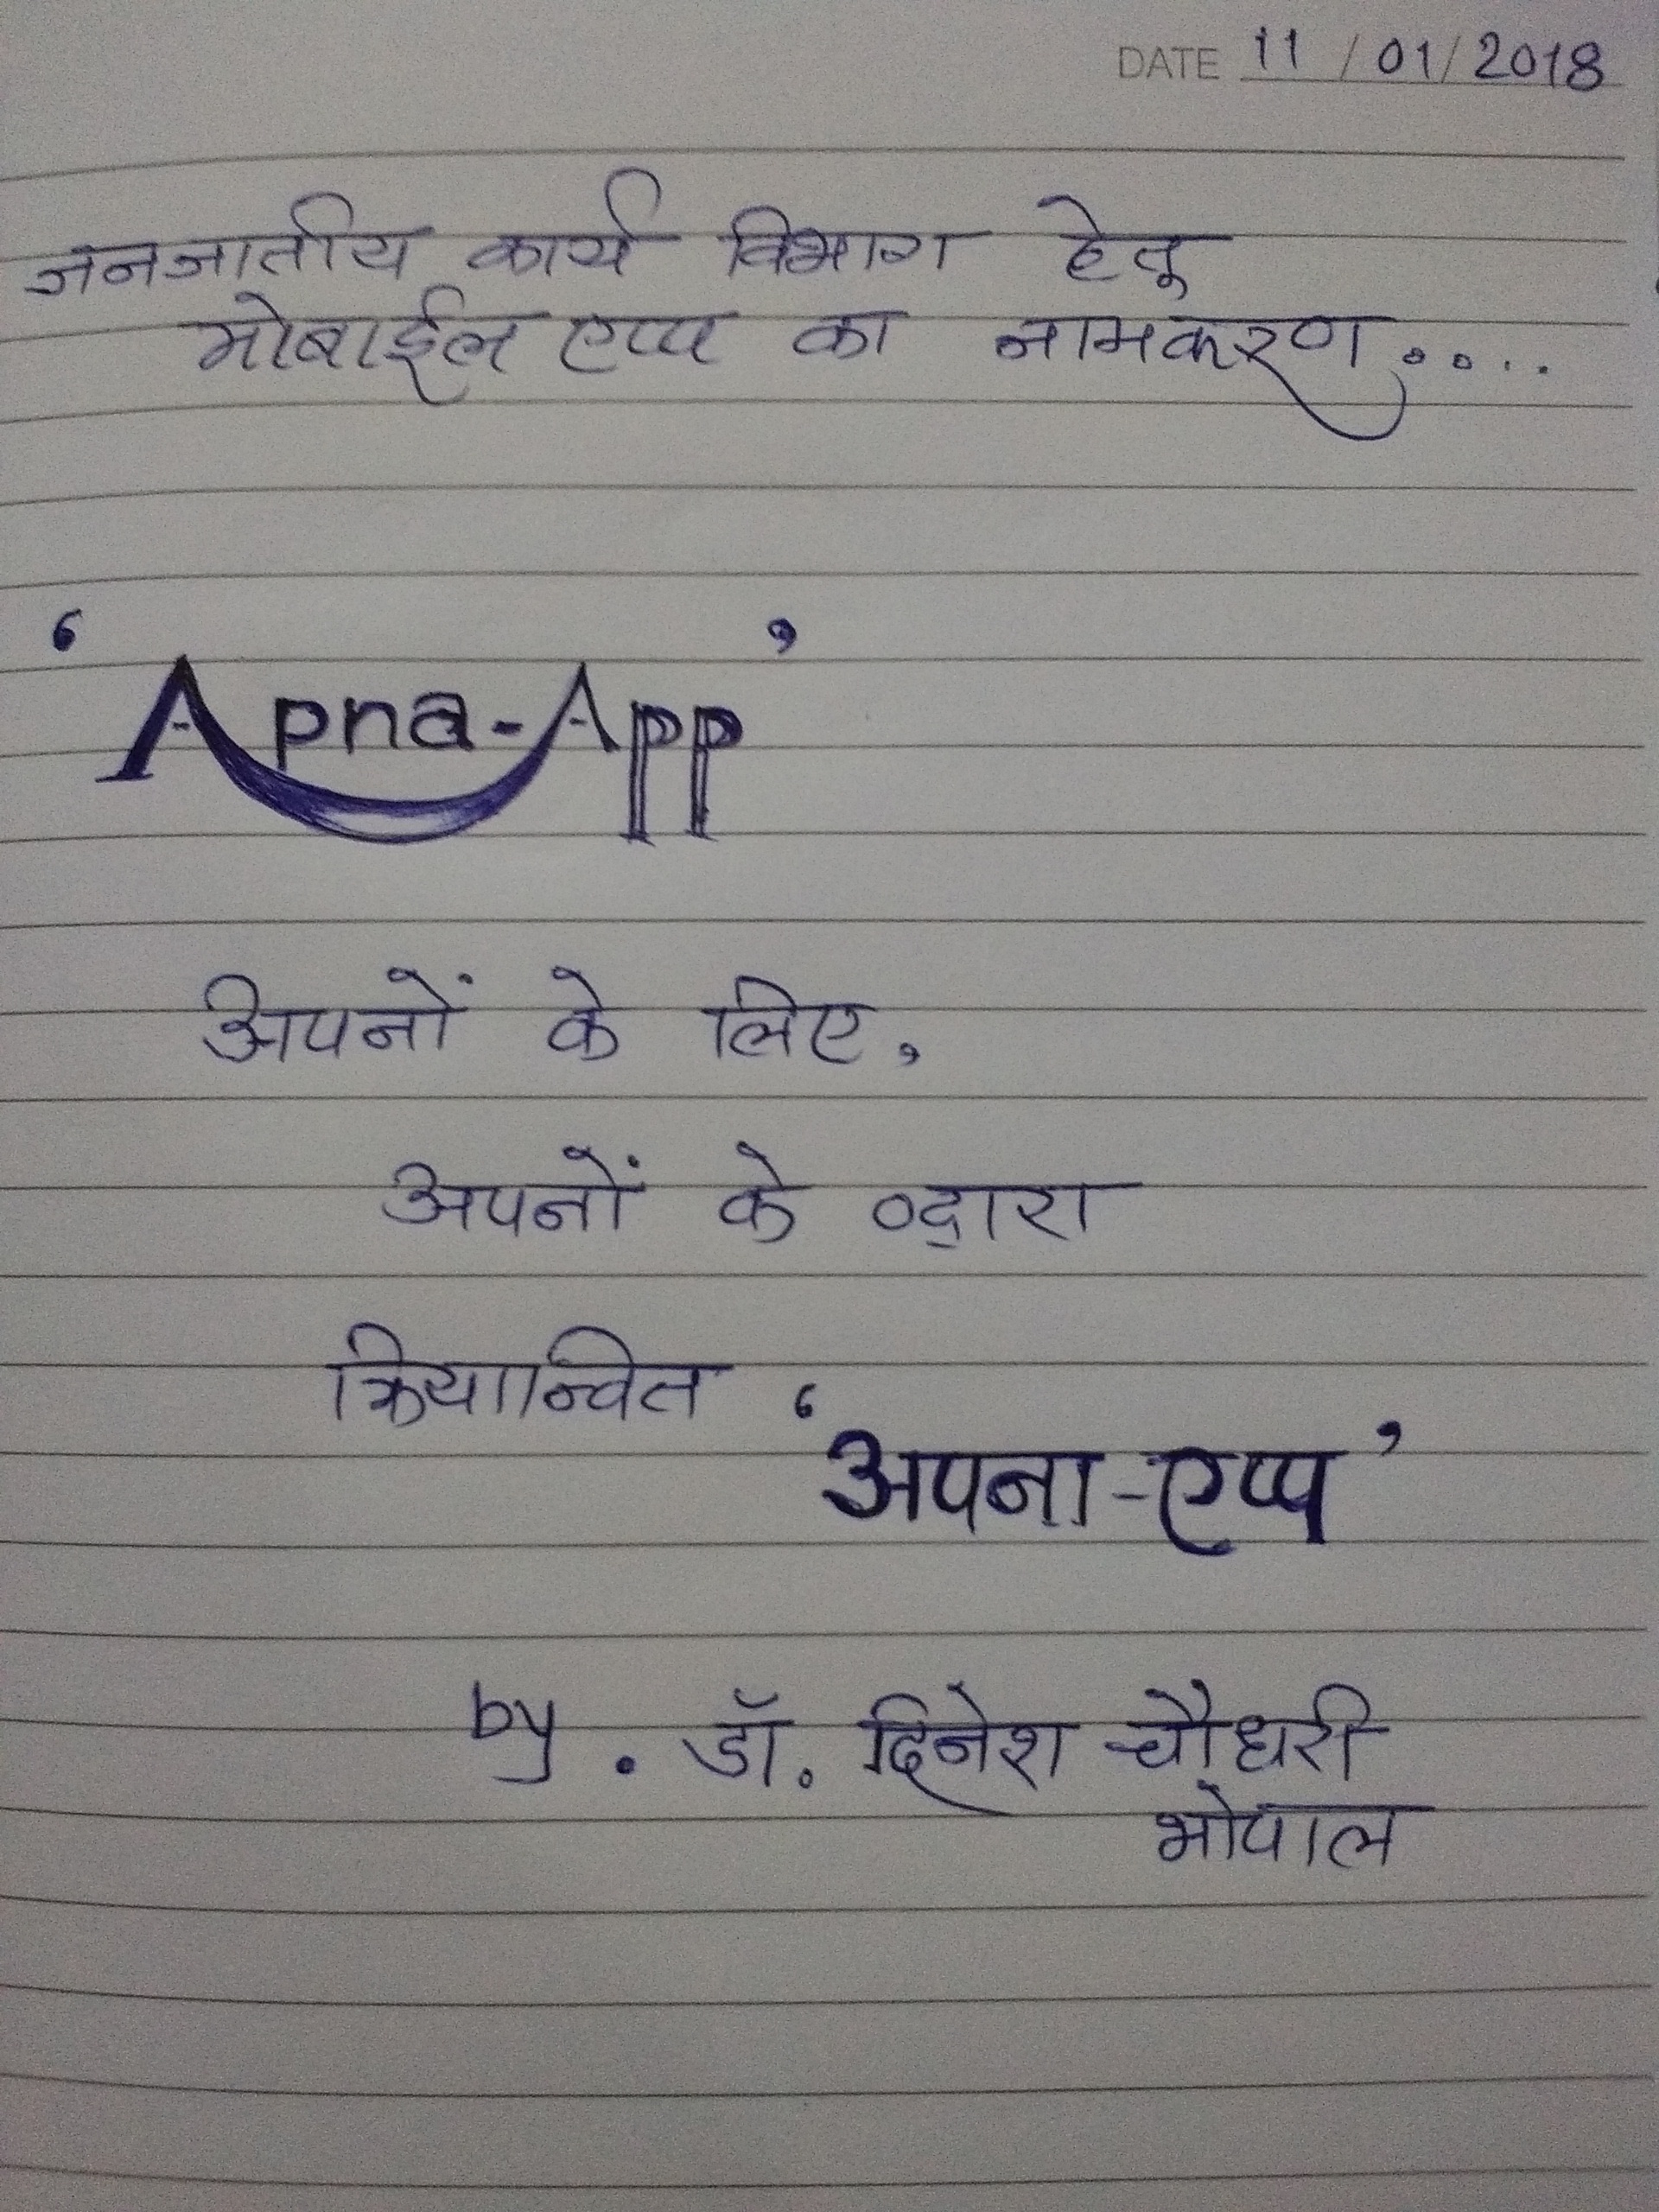 DATE 11 / 01 / 2018
जनजातीय कार्य विभाग हेतू
मोबाईल एप्प का नामकरण....
‘Apna-App’
अपनों के लिए,
अपनों के व्दारा
क्रियान्वित
‘अपना-एप्प’
by. डॉ. दिनेश चौधरी
भोपाल